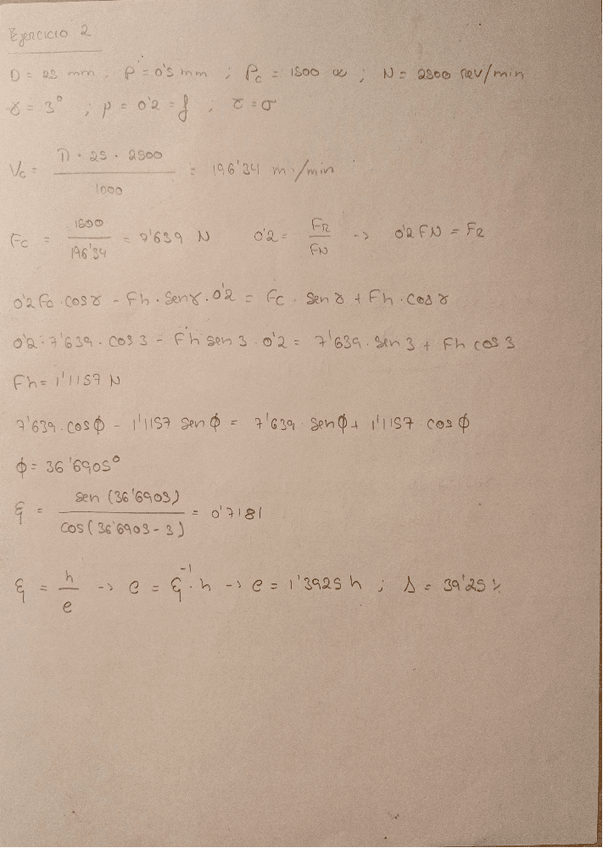 Ejercicio 2
D = 25 mm ; P = 0'5 mm ; Pc = 1500 w ; N = 2500 rev/min
γ = 3° ; μ = 0'2 = f ; τ = σ
Vc = (π · 25 · 2500) / 1000 = 196'34 m/min
Fc = 1500 / 196'34 = 7'639 N 0'2 = FR / FN -> 0'2 FN = FR
0'2 Fc · cos γ - Fh · sen γ · 0'2 = Fc · sen γ + Fh · cos γ
0'2 · 7'639 · cos 3 - Fh sen 3 · 0'2 = 7'639 · sen 3 + Fh cos 3
Fh = 1'1157 N
7'639 · cos ϕ - 1'1157 sen ϕ = 7'639 sen ϕ + 1'1157 · cos ϕ
ϕ = 36'6905°
ξ = sen (36'6903) / cos (36'6903 - 3) = 0'7181
ξ = h / e -> e = ξ⁻¹ · h -> e = 1'3925 h ; Δ = 39'25 %